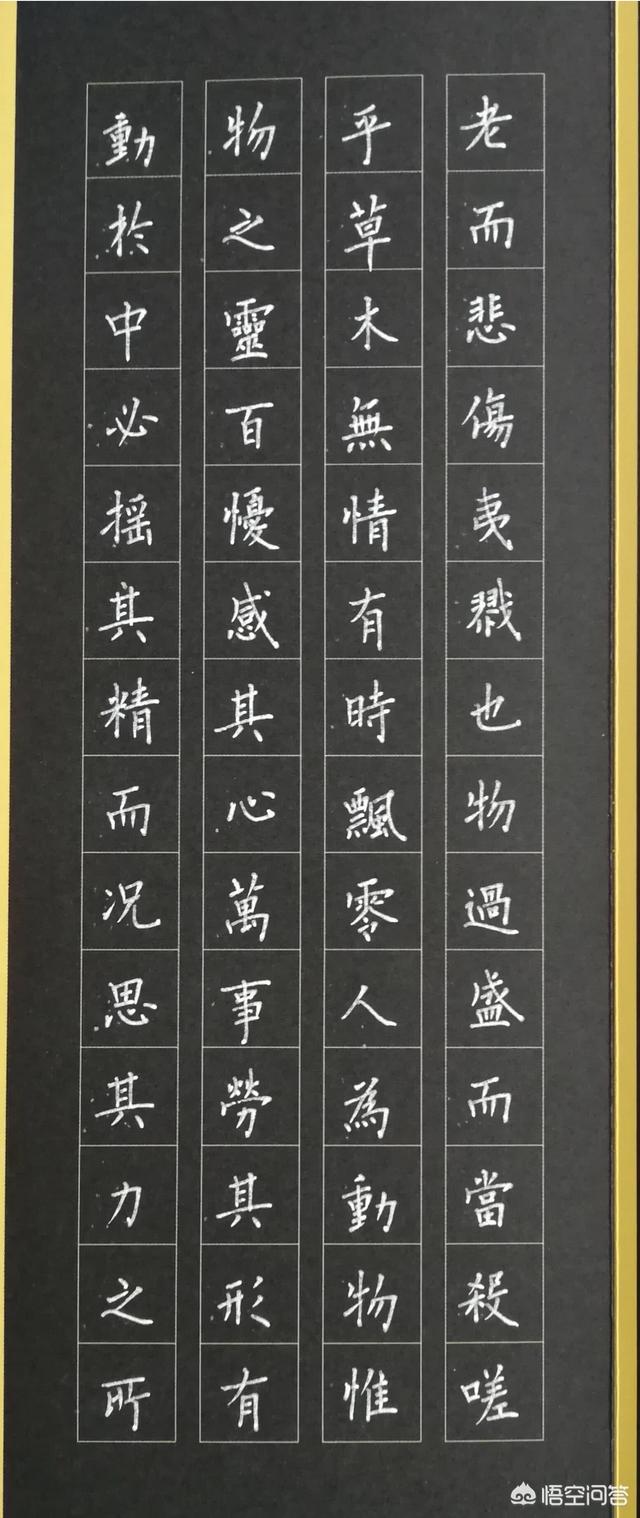 老而悲傷夷戮也物過盛而當殺嗟
乎草木無情有時飄零人為動物惟
物之靈百憂感其心萬事勞其形有
動於中必摇其精而况思其力之所
悟空问答